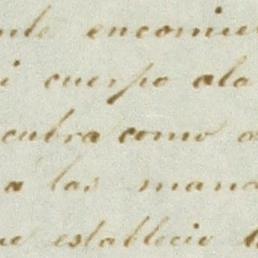 nte encomie
i cuerpo ala
cubra como
a las mand
ue establecio